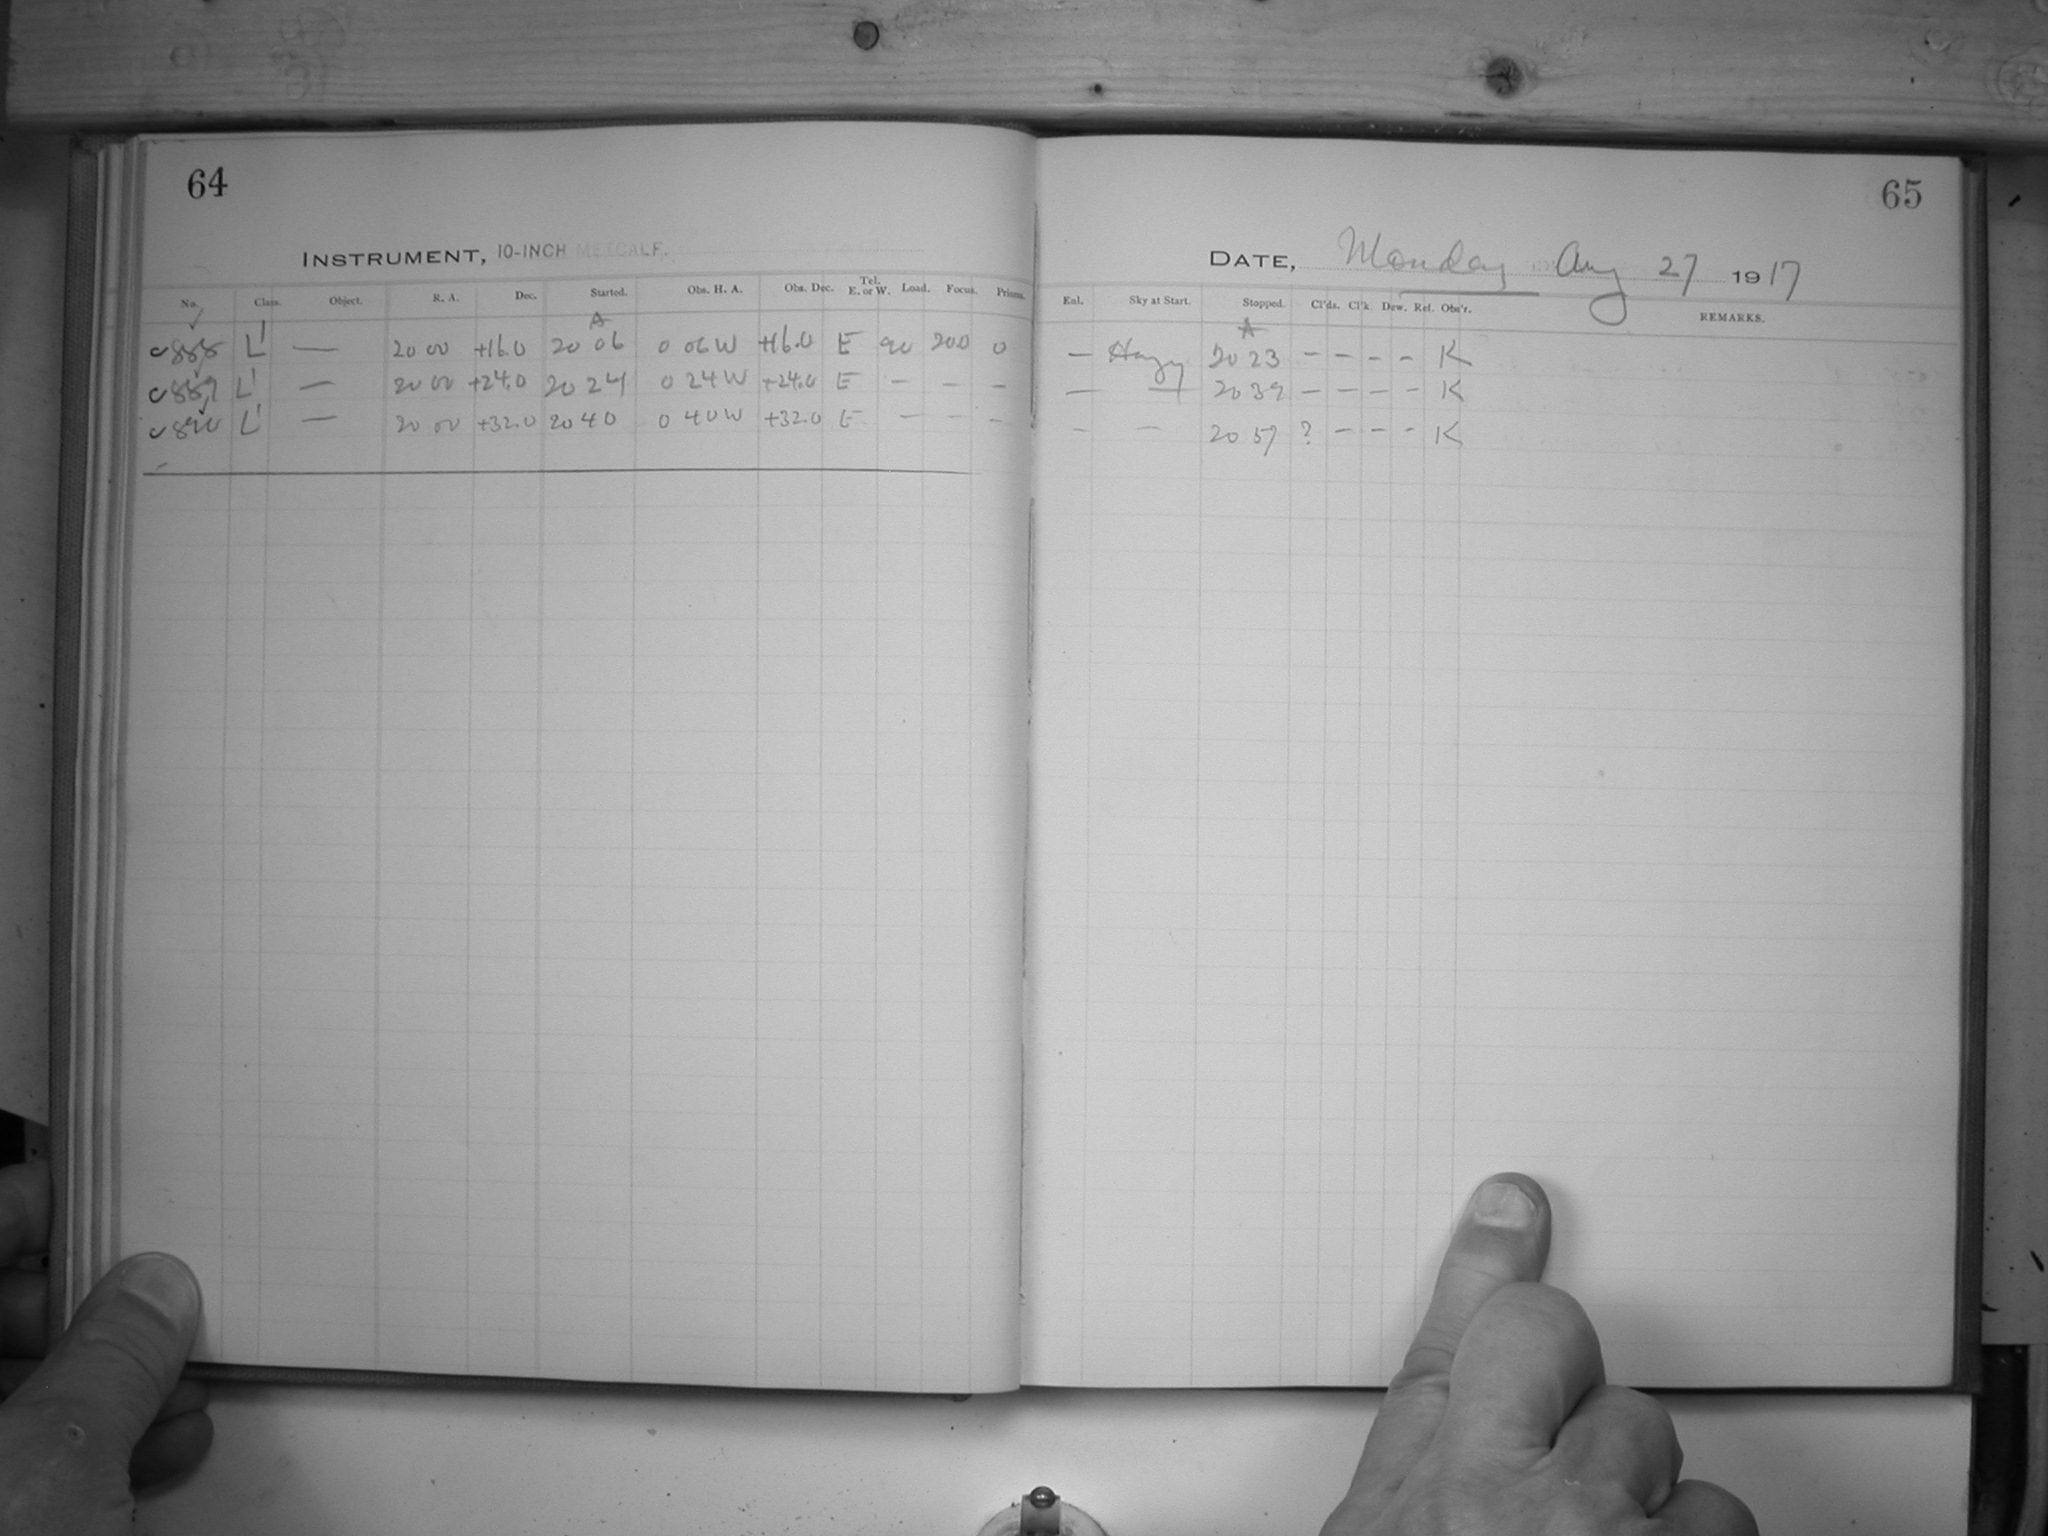 64
65
INSTRUMENT, 10-INCH METCALF.
DATE, Monday Aug 27 1917
No. Class. Object. R. A. Dec. Started. Obs. H. A. Obs. Dec. Tel. E. or W. Load. Focus. Prisms. Enl. Sky at Start. Stopped. Cl'ds. Cl'k. Dew. Ref. Obs'r. REMARKS.
A A
c888 L' — 20 00 +16.0 20 06 0 06 W +16.0 E 90 200 0 — Hazy 20 23 - - - - K
c889 L' — 20 00 +24.0 20 24 0 24 W +24.0 E - - - — — 20 39 - - - - K
c890 L' — 20 00 +32.0 20 40 0 40 W +32.0 E - - - - — 20 57 ? - - - K